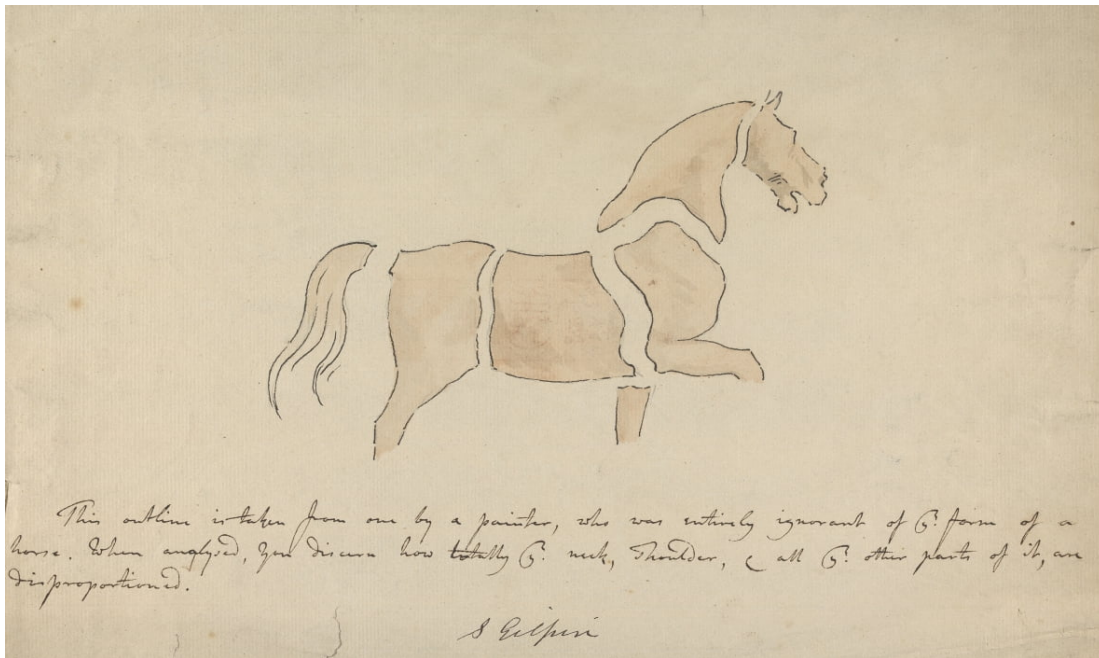 This outline is taken from one by a painter, who was entirely ignorant of yͤ. form of a
horse. When analysed, you discern how totally yͤ. neck, shoulder, & all yͤ. other parts of it, are
disproportioned.
S Gilpin